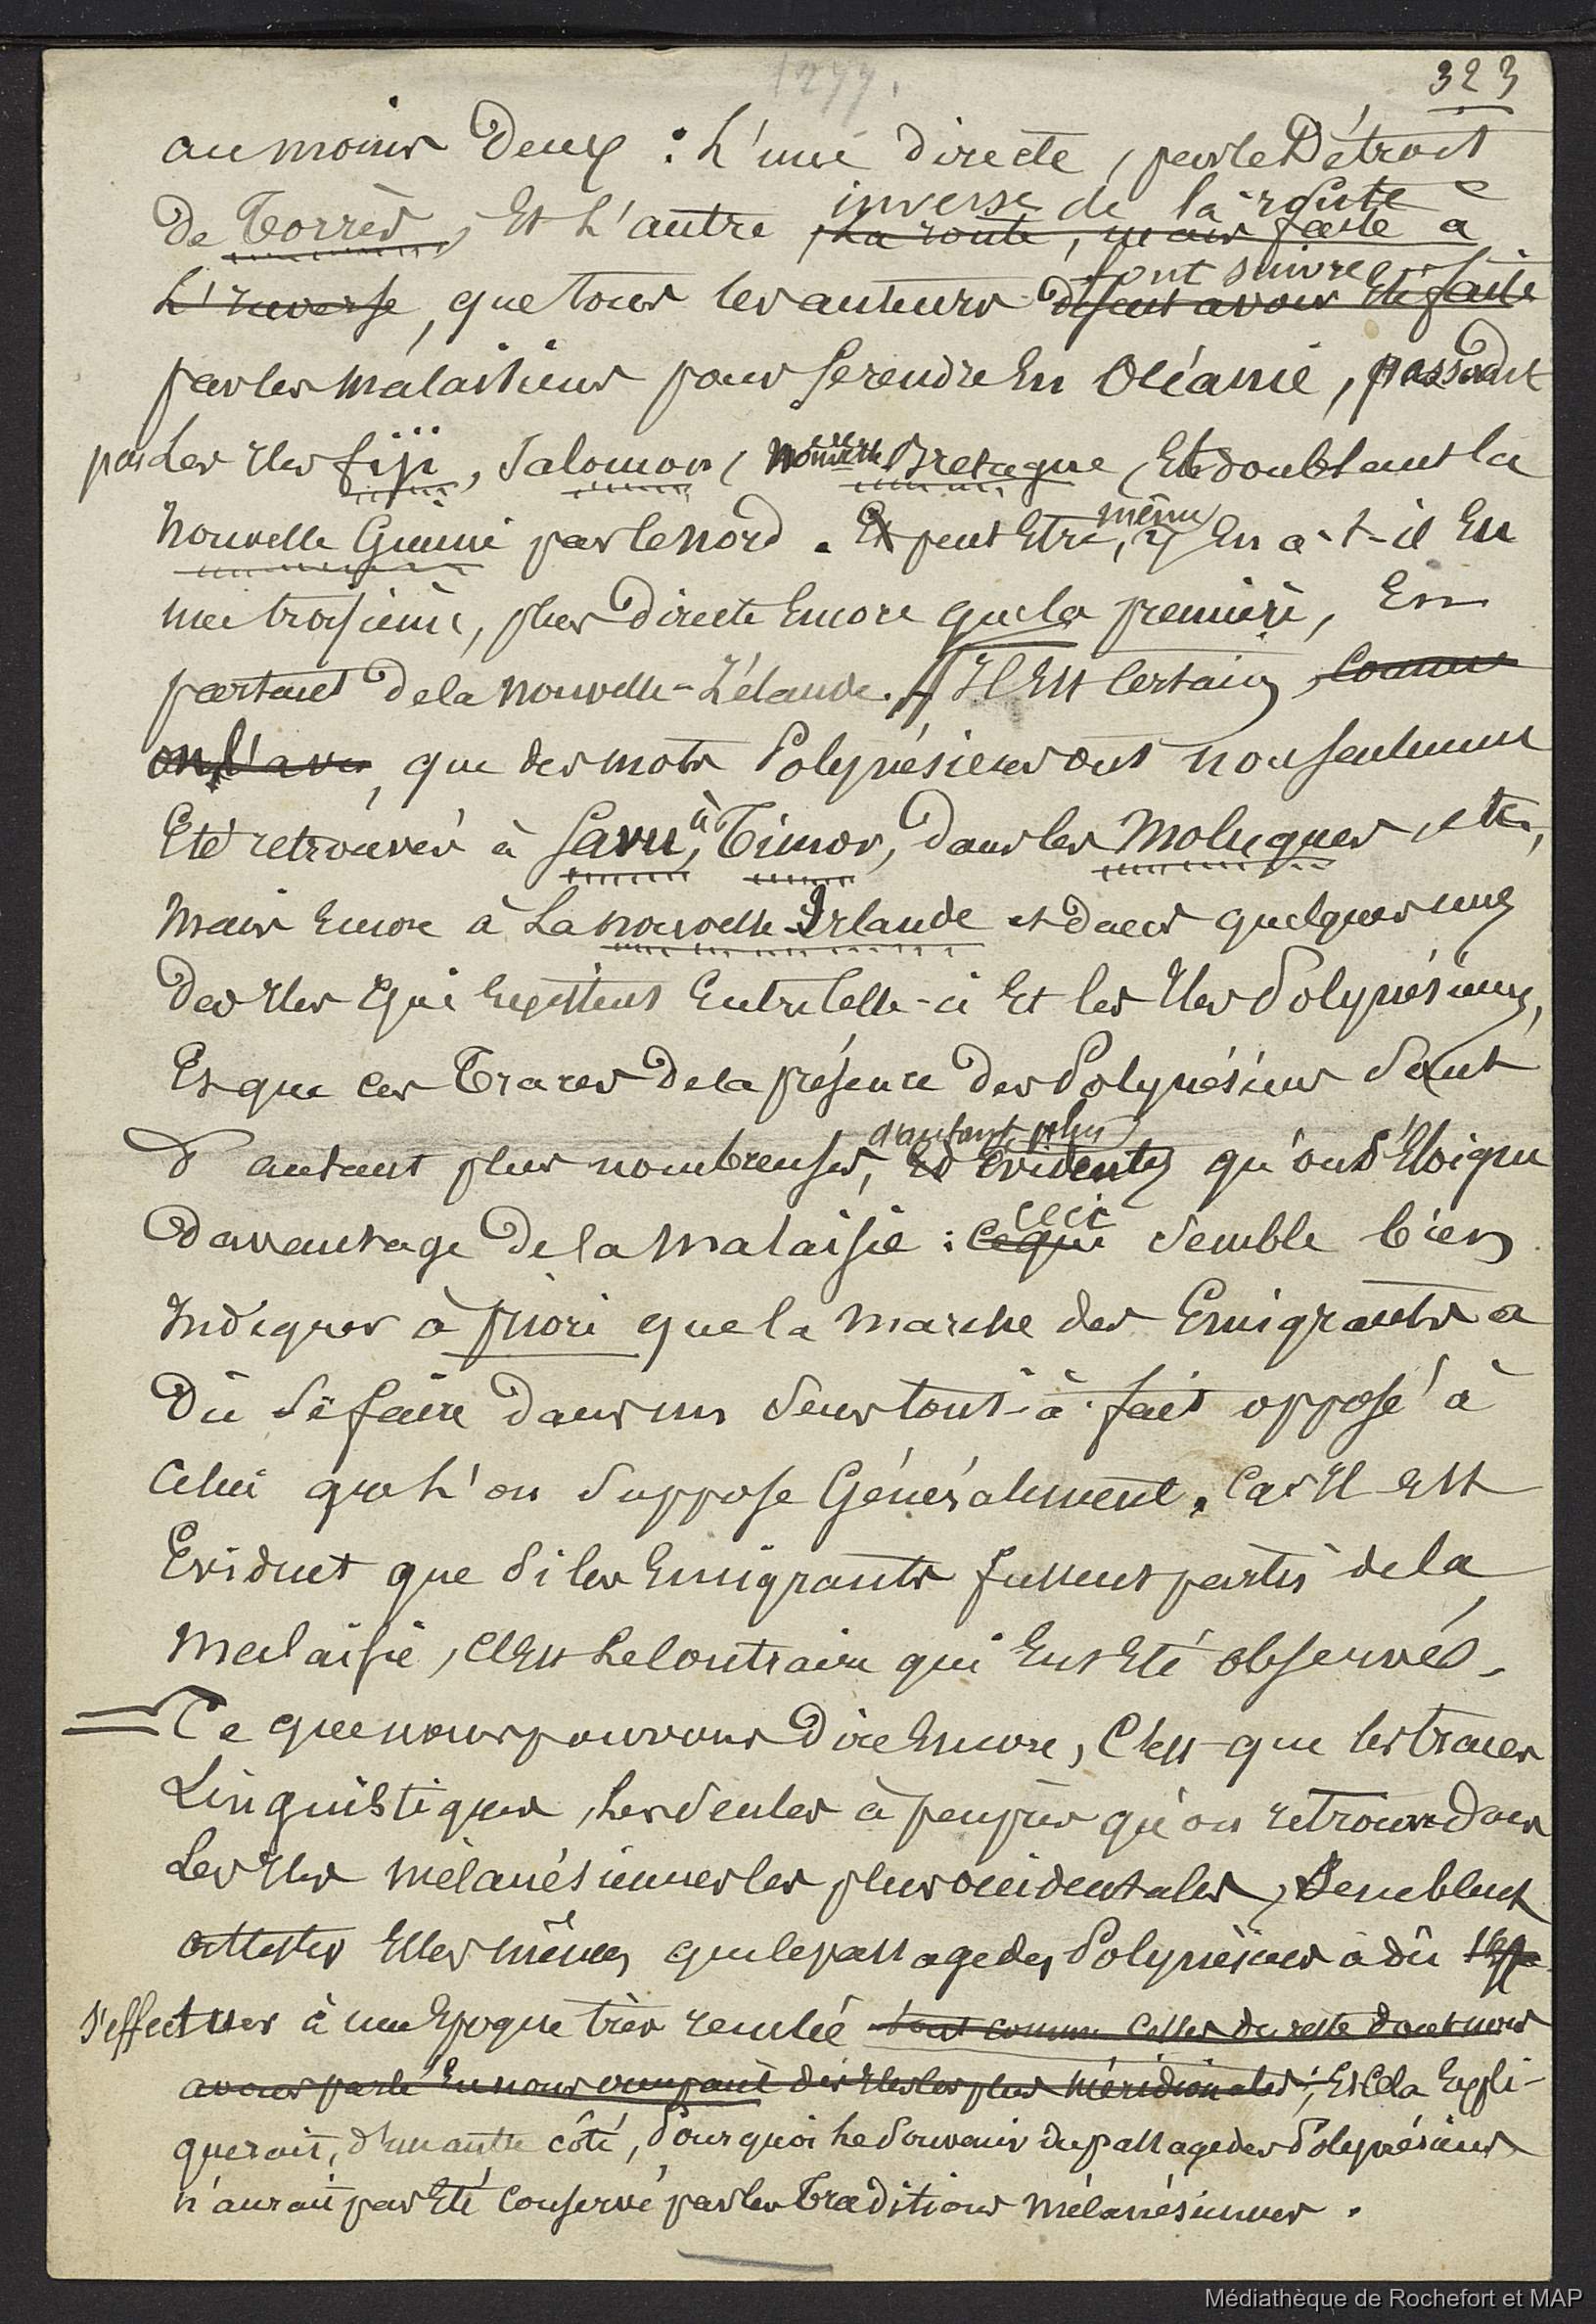 1277.
323
au moins deux : L'une directe, par le Détroit
inverse de la route
de Torrès, et L'autre, La route, mais faite à
font suivre
L'inverse, que tous les auteurs disent avoir été faite
par les malaisiens pour se rendre En Océanie, passant
par Les Iles fiji, Salomon, Nouvelle Bretagne, Et doublant la
Nouvelle Guinée par le nord. Et peut Etre, même y En a-t-il Eu
une troisième, plus directe Encore que la première, En
partant de la Nouvelle-Zélande. Il Est Certain, comme
on l'a vu, que des mots Polynésiens ont non seulement
Eté retrouvés à Savu, à Timor, dans les Moluques, etc,
Mais Encore à La nouvelle Irlande et dans quelques unes
des Iles qui Existent Entre Celle-ci Et les Iles Polynésiennes,
Et que ces Traces de la présence des Polynésiens Sont
d'autant plus
d'autant plus nombreuses, Et Evidentes qu'on S'Eloigne
ceci
davantage de la Malaisie : ce qui Semble bien
Indiquer à priori que la marche des Emigrants a
dû Se faire dans un Sens tout-à-fait opposé à
Celui que L'on Suppose Généralement. Car Il Est
Evident que Si les Emigrants fussent partis de la
Malaisie, C'Est Le Contraire qui Eut Eté observé.
Ce que nous pouvons dire Encore, C'Est que les traces
Linguistiques, Les Seules à peu près qu'on retrouve dans
Les Iles mélanésiennes les plus occidentales, Semblent
attester Elles mêmes que le passage des Polynésiens a dû
s'effectuer à une Epoque très reculée tout comme Celles du reste dont nous
avons parlé En nous occupant des Iles les plus méridionales ; Et Cela Expli-
querait, d'un autre côté, Pourquoi Le Souvenir du passage des Polynésiens
n'aurait pas Eté Conservé par les Traditions Mélanésiennes.
Médiathèque de Rochefort et MAP